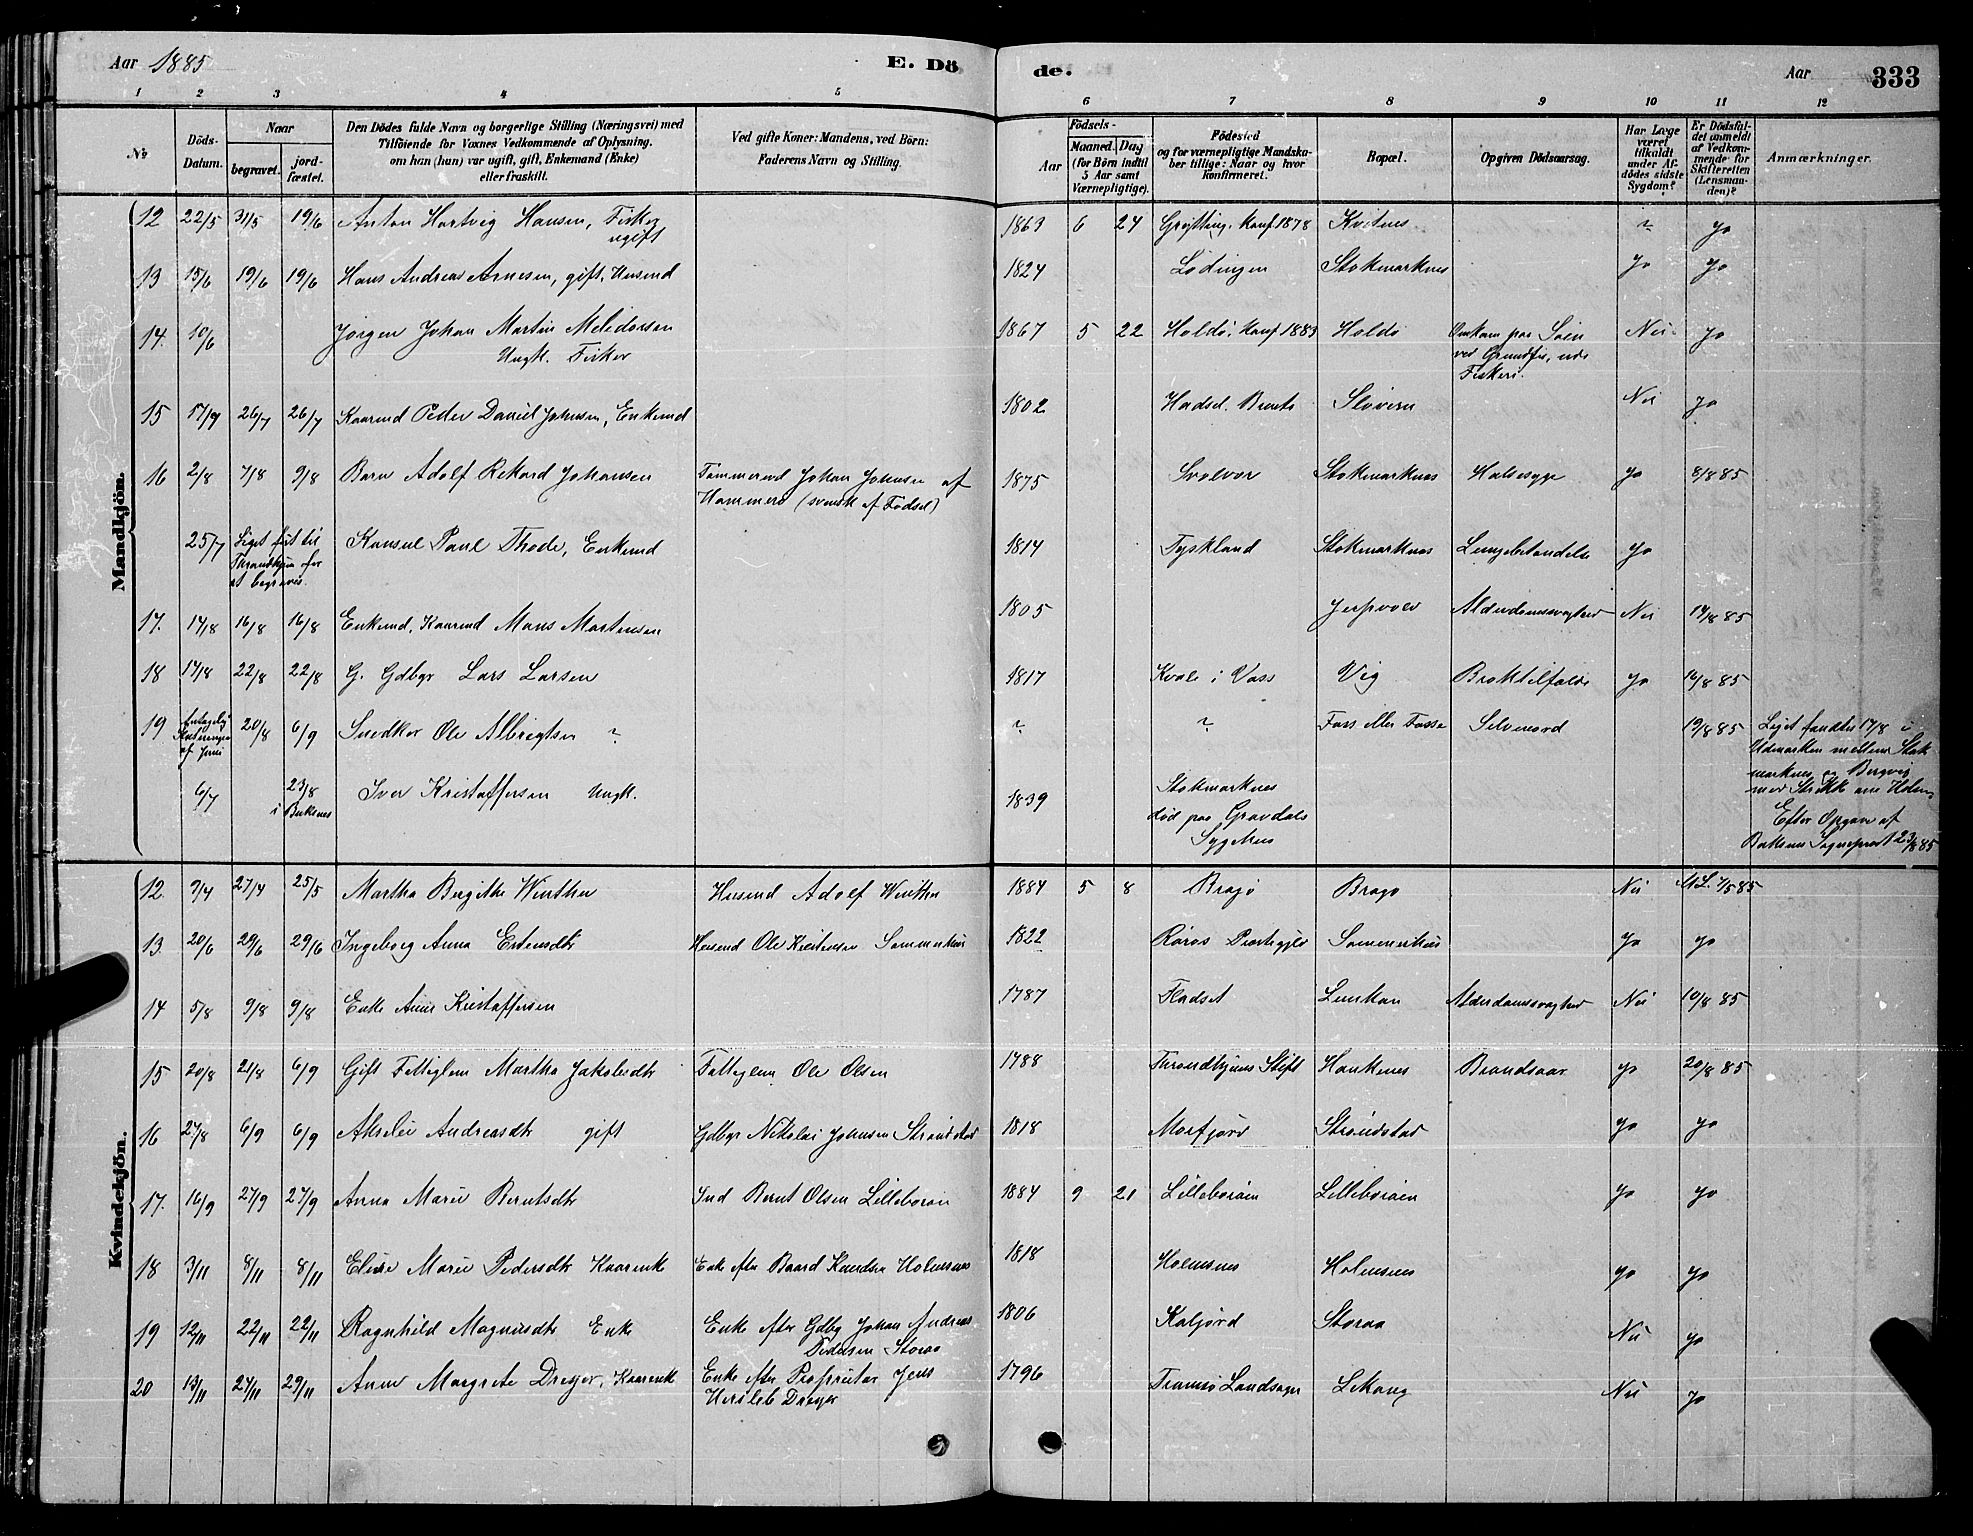 Aar 1885 E. Dö de. Aar 333
1 2 3 4 5 6 7 8 9 10 11 12
No
Döds-Datum.
Naar
begravet.
jord-fæstet.
Den Dödes fulde Navn og borgerlige Stilling (Næringsvei) med
Tilföiende for Voxnes Vedkommende af Oplysning.
om han (hun) var ugift, gift, Enkemand (Enke)
eller fraskilt.
Ved gifte Koner: Mandens, ved Börn:
Faderens Navn og Stilling.
Födsels-
Aar
Maaned. Dag
(for Börn indtil
5 Aar samt
Værnepligtige).
Födested
og for værnepligtige Mandska-
ber tillige: Naar og hvor
konfirmeret.
Bopæl.
Opgiven Dödsaarsag.
Har Læge
været
tilkaldt
under Af-
dödes sidste
Sygdom?
Er Dödsfal-
det anmeldt
af Vedkom-
mende for
Skifteretten
(Lensman-
den)?
Anmærkninger.
Mandkjön.
12 22/5 31/5 19/6 Anton Hartvig Hansen, Fisker 1863 6 24 Grytting. Konf 1878 Kvitnes ? Ja
ugift
13 15/6 19/6 19/6 Hans Andreas Arnesen, gift, Husmd 1824 Lødingen Stokmarknes Ja Ja
14. 10/6 Jørgen Johan Martin Melidorsen 1867 5 22 Holdø. Konf 1883 Holdø Omkom paa Søen Nei Ja
Ungk. Fisker ved Grundfør, ude
Fiskeri.
15 17/7 26/7 26/7 Kaarmd Peder Daniel Johnsen, Enkemd 1802 Hadsel. Slovern Nei Ja
16 2/8 7/8 9/8 Barn Adolf Rikard Johansen Tømmermd Johan Johnsen af 1875 Svolvær Stokmarknes Halssyge Ja 8/8 85
Hammerø (svensk af Fødsel)
25/7 Liget ført til Konsul Paul Thode, Enkemd 1814 Tyskland Stokmarknes Lungebetændelse Ja
Throndhjem for
at begraves.
17. 14/8 16/8 16/8 Enkemd, Kaarmd Mons Mortensen 1805 Alderdomssvaghed Nei 14/8 85
18 14/8 22/8 22/8 G. Gdbgr Lars Larsen 1817 Kvale i Voss Vig Broktilfælde Ja 16/8 85
19 Antagelig 20/8 6/9 Snedker Ole Albrigtsen ? ? ? Foss eller Fosse Selvmord 19/8 85 Liget fandtes 17/8 i
Slutningen Udmarken mellem Stok
af Juni marknes og Bergvig
6/7 23/8 Iver Kristoffersen Ungk. 1839 Stokmarknes med Strikk om Halsen
i Buksnes død paa Gravdals Efter Opgave af
Sygehus Buksnes Sogneprest 23/8 85
Kvindekjön.
12. 9/4 27/4 25/5 Martha Birgitte Winther Husmd Adolf Winther 1884 5 8 Bragø Bragø Nei 7/5 85
13. 20/6 29/6 29/6 Ingeborg Anna Estensdtr Husmd Ole Kristensen Sommerhus 1822 Røros Præstegjeld Sommerhus Ja Ja
14 5/8 9/8 9/8 Enke Anne Kristoffersen 1787 Fladset Lunkan Alderdomssvaghed Nei 10/8 85
15 20/8 21/8 6/9 Gift Fattiglem Martha Jakobsdtr Fattiglem Ole Olsen 1788 Throndhjems Stift Haukenes Brandsaar Ja 20/8 85
16 27/8 6/9 6/9 Akselie Andreasdtr gift Gdbgr Nikolai Johnsen Strandstad 1818 Morfjord Strandstad Ja Ja
17. 16/9 27/9 27/9 Anna Marie Berntsdtr Ind Bernt Olsen Lilleborøen 1884 9 21 Lilleborøen Lilleborøen Ja Ja
18 3/11 8/11 8/11 Elise Marie Pedersdtr Kaarenke Enke efter Baard Knudsen Holmsnes 1818 Holmsnes Holmsnes Ja Ja
19 12/11 22/11 22/11 Ragnhild Magnusdtr Enke Enke efter Gdbg Johan Andreas 1806 Kaljord Storaa Nei Ja
Pedersen Storaa
20 13/11 24/11 29/11 Anne Margrete Dreyer, Kaarenke Enke efter Proprietær Jens 1796 Tromsø Landsogn Lekang Nei Ja
Hersleb Dreyer